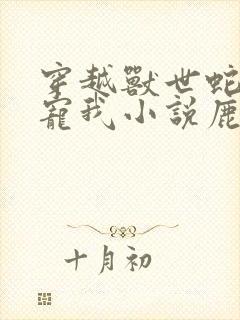 穿越獸世蛇
寵我小說鹿
十月初